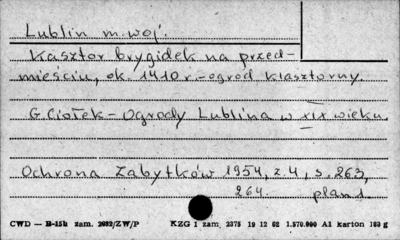 Lublin m. woj.
Kasztor brygidek na przed-
mieściu, ok. 1410 r. - ogród klasztorny
G. Ciołek - Ogrody Lublina w XIX wieku.
Ochrona Zabytków 1954, z. 4, s. 263,
264. plan 1.
CWD — B-15b zam. 2082/ZW/P KZG 1 zam. 2375 19 12 62 1.570.000 A1 karton 163 g